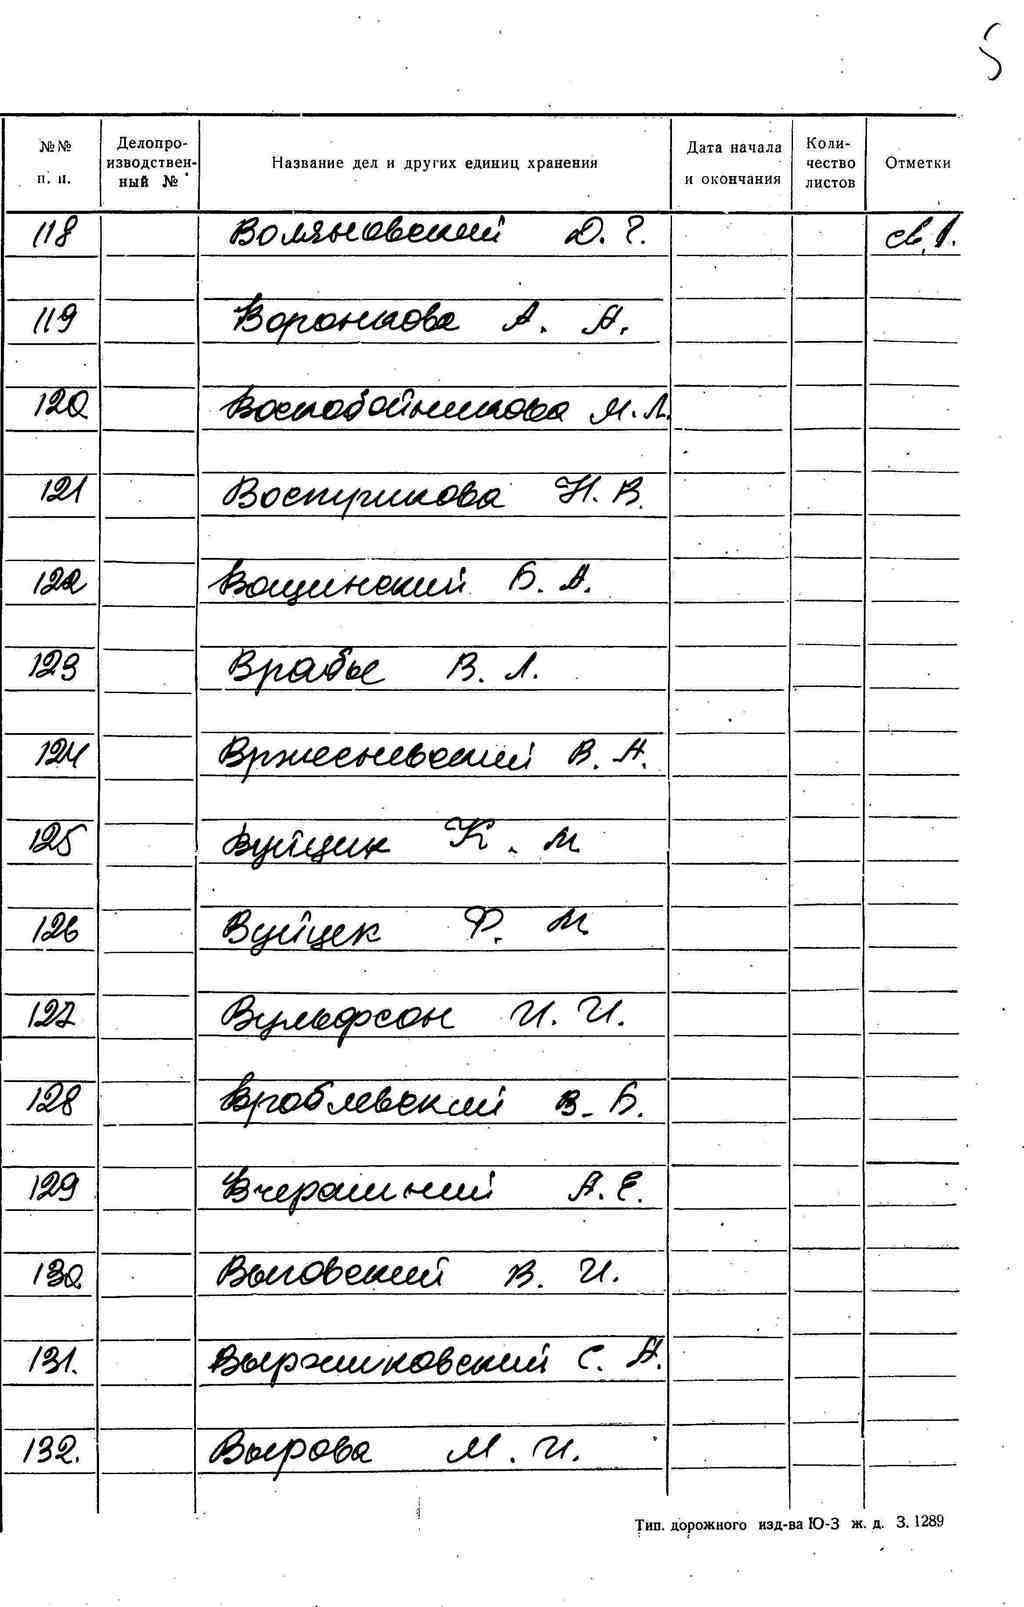 5
№№ п. п.
Делопроизводственный №
Название дел и других единиц хранения
Дата начала и окончания
Количество листов
Отметки
118 Воляновский Д. Г. св. 1.
119 Воронкова А. А.
120 Воскобойникова М. Л.
121 Воструикова Н. В.
122 Вощинский Б. А.
123 Врабье В. Л.
124 Вржесневский В. А.
125 Вуйцик К. М
126 Вуйцек Ф. М
127 Вульфсон И. И.
128 Вроблевский В. Б.
129 Вчерашний А. Е.
130 Выговский В. И.
131. Выржиковский С. А.
132. Вырова М. И.
Тип. дорожного изд-ва Ю-З ж. д. З. 1289